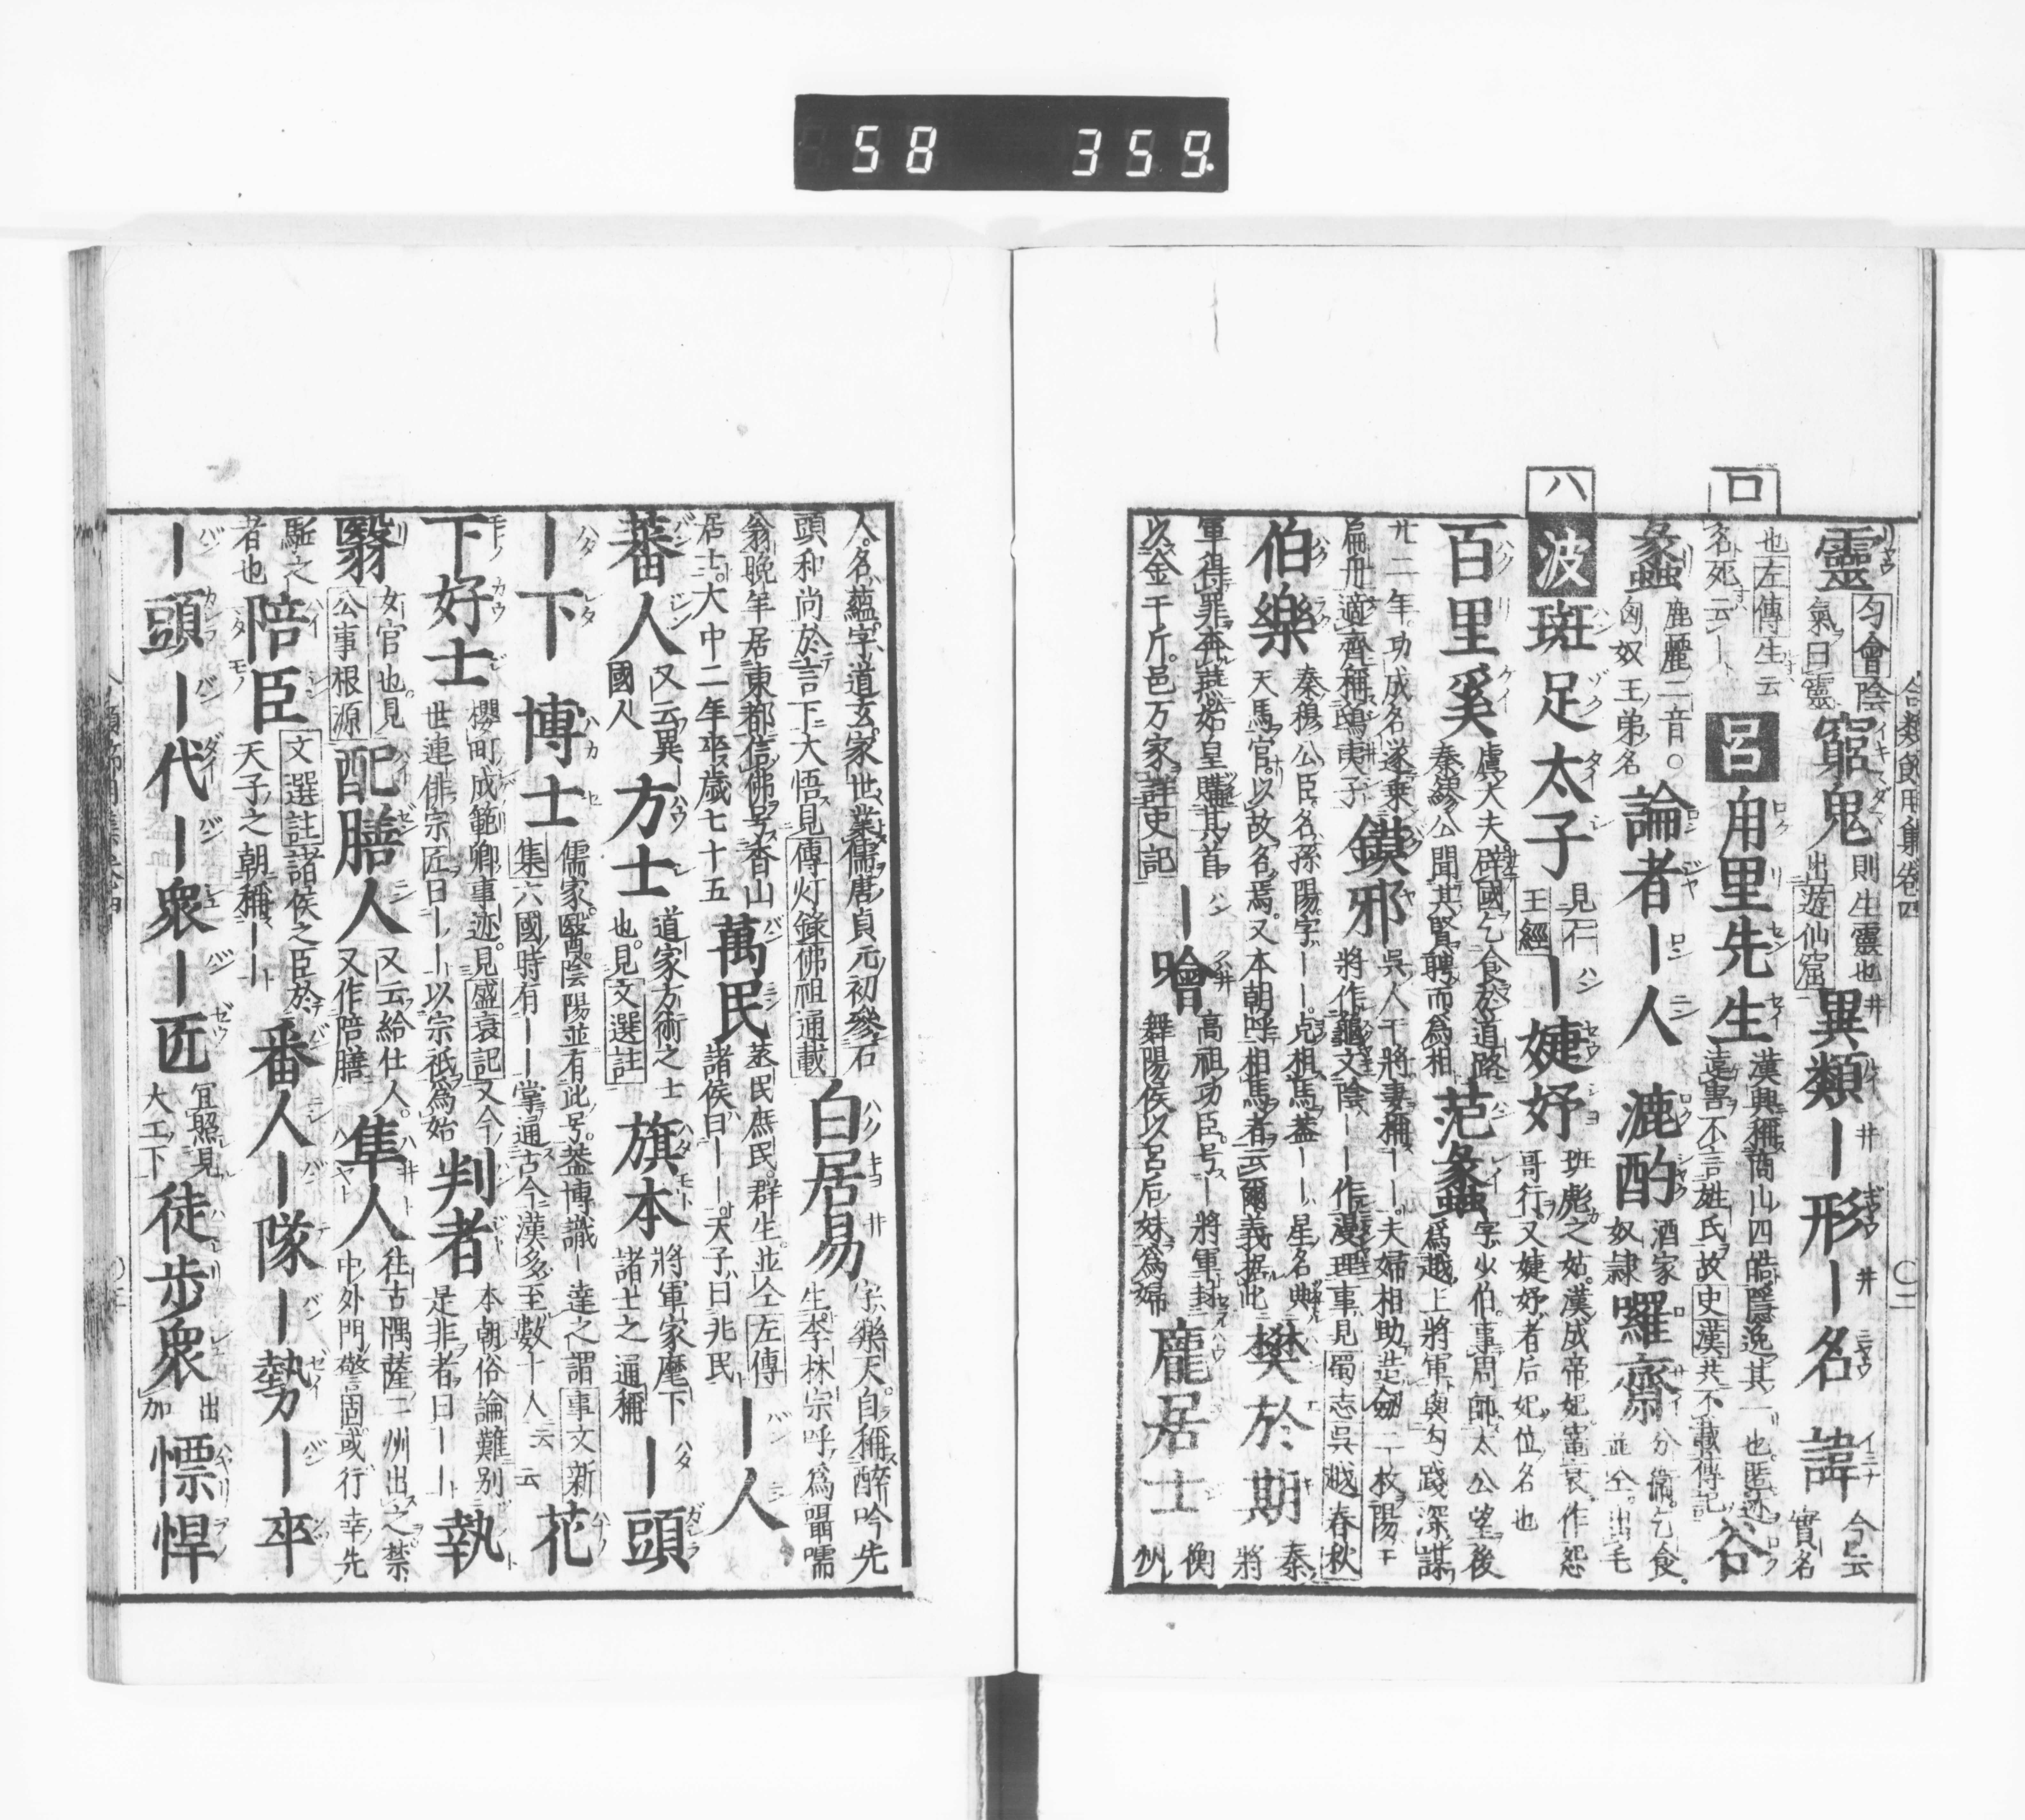 58 359
合類節用集卷四
靈 匀會陰氣曰靈 窮鬼 則生靈也出遊仙窟 異類 ー形 ー名 諱 今云實名
也左傳生云名死云ー 呂 甪里先生 漢興稱商山四皓隱逸其一也匿迹遠害不言姓氏故史漢共不載傳記 谷
蠡 鹿麗二音○匈奴王弟名 論者 ー人 漉酌 酒家奴隷 囉齋 分衞乞食。並仝出毛
ハ 波 斑足太子 見仁王經 ー婕妤 班彪之姑漢成帝妃竃衰作怨哥行又婕妤者后妃位名也
ロ
百里奚 虞大夫辟國乞食於道路秦繆公聞其賢聘而爲相 范蠡 字少伯事周師太公望後爲越上將軍與勾踐深謀
廿二年功成名遂乗扁舟適齊稱鴟夷子 鏌邪 呉人干將妻稱ーー夫婦相助造劔二枚陽干將作龜文陰ーー作漫理事見蜀志呉越春秋
伯樂 秦穆公臣名孫陽字ーー尅相馬蓋ーー星名典天馬官以故名焉又本朝呼相馬者云爾義據此 樊於期 秦將
軍得罪奔燕始皇購其首以金千斤邑万家詳史記 ー噲 高祖功臣号ー將軍封舞陽侯以呂后妹爲婦 龐居士 衡州
人名蘊字道玄家世業儒唐貞元初參石頭和尚於言下大悟見傳灯錄佛祖通載 白居易 字樂天自稱醉吟先生李林宗呼爲囁嚅
翁晩年居東都信佛号香山居士大中二年卒歳七十五 萬民 蒸民庶民群生並仝左傳諸侯曰ーー天子曰兆民 ー人
蕃人 又云異ー國人 方士 道家方術之士也見文選註 旗本 將軍家麾下諸士之通稱 ー頭
ー下 博士 儒家醫陰陽並有此号蓋博識ー達之謂事文新集六國時有ーー掌通古今漢多至數十人云云 花
下好士 櫻町成範卿事迹見盛衰記又今世連俳宗匠曰ーーー以宗祇爲始 判者 本朝俗論難別是非者曰ーー 執
翳 女官也見公事根源 配膳人 又云給仕人又作陪膳 隼人 往古隅薩二州出之禁中外門警固或行幸先
駈之者也 陪臣 文選註諸侯之臣於天子之朝稱ーー 番人 ー隊 ー勢 ー卒
ー頭 ー代 ー衆 ー匠 宜照見大工下 徒步衆 出加 慓悍